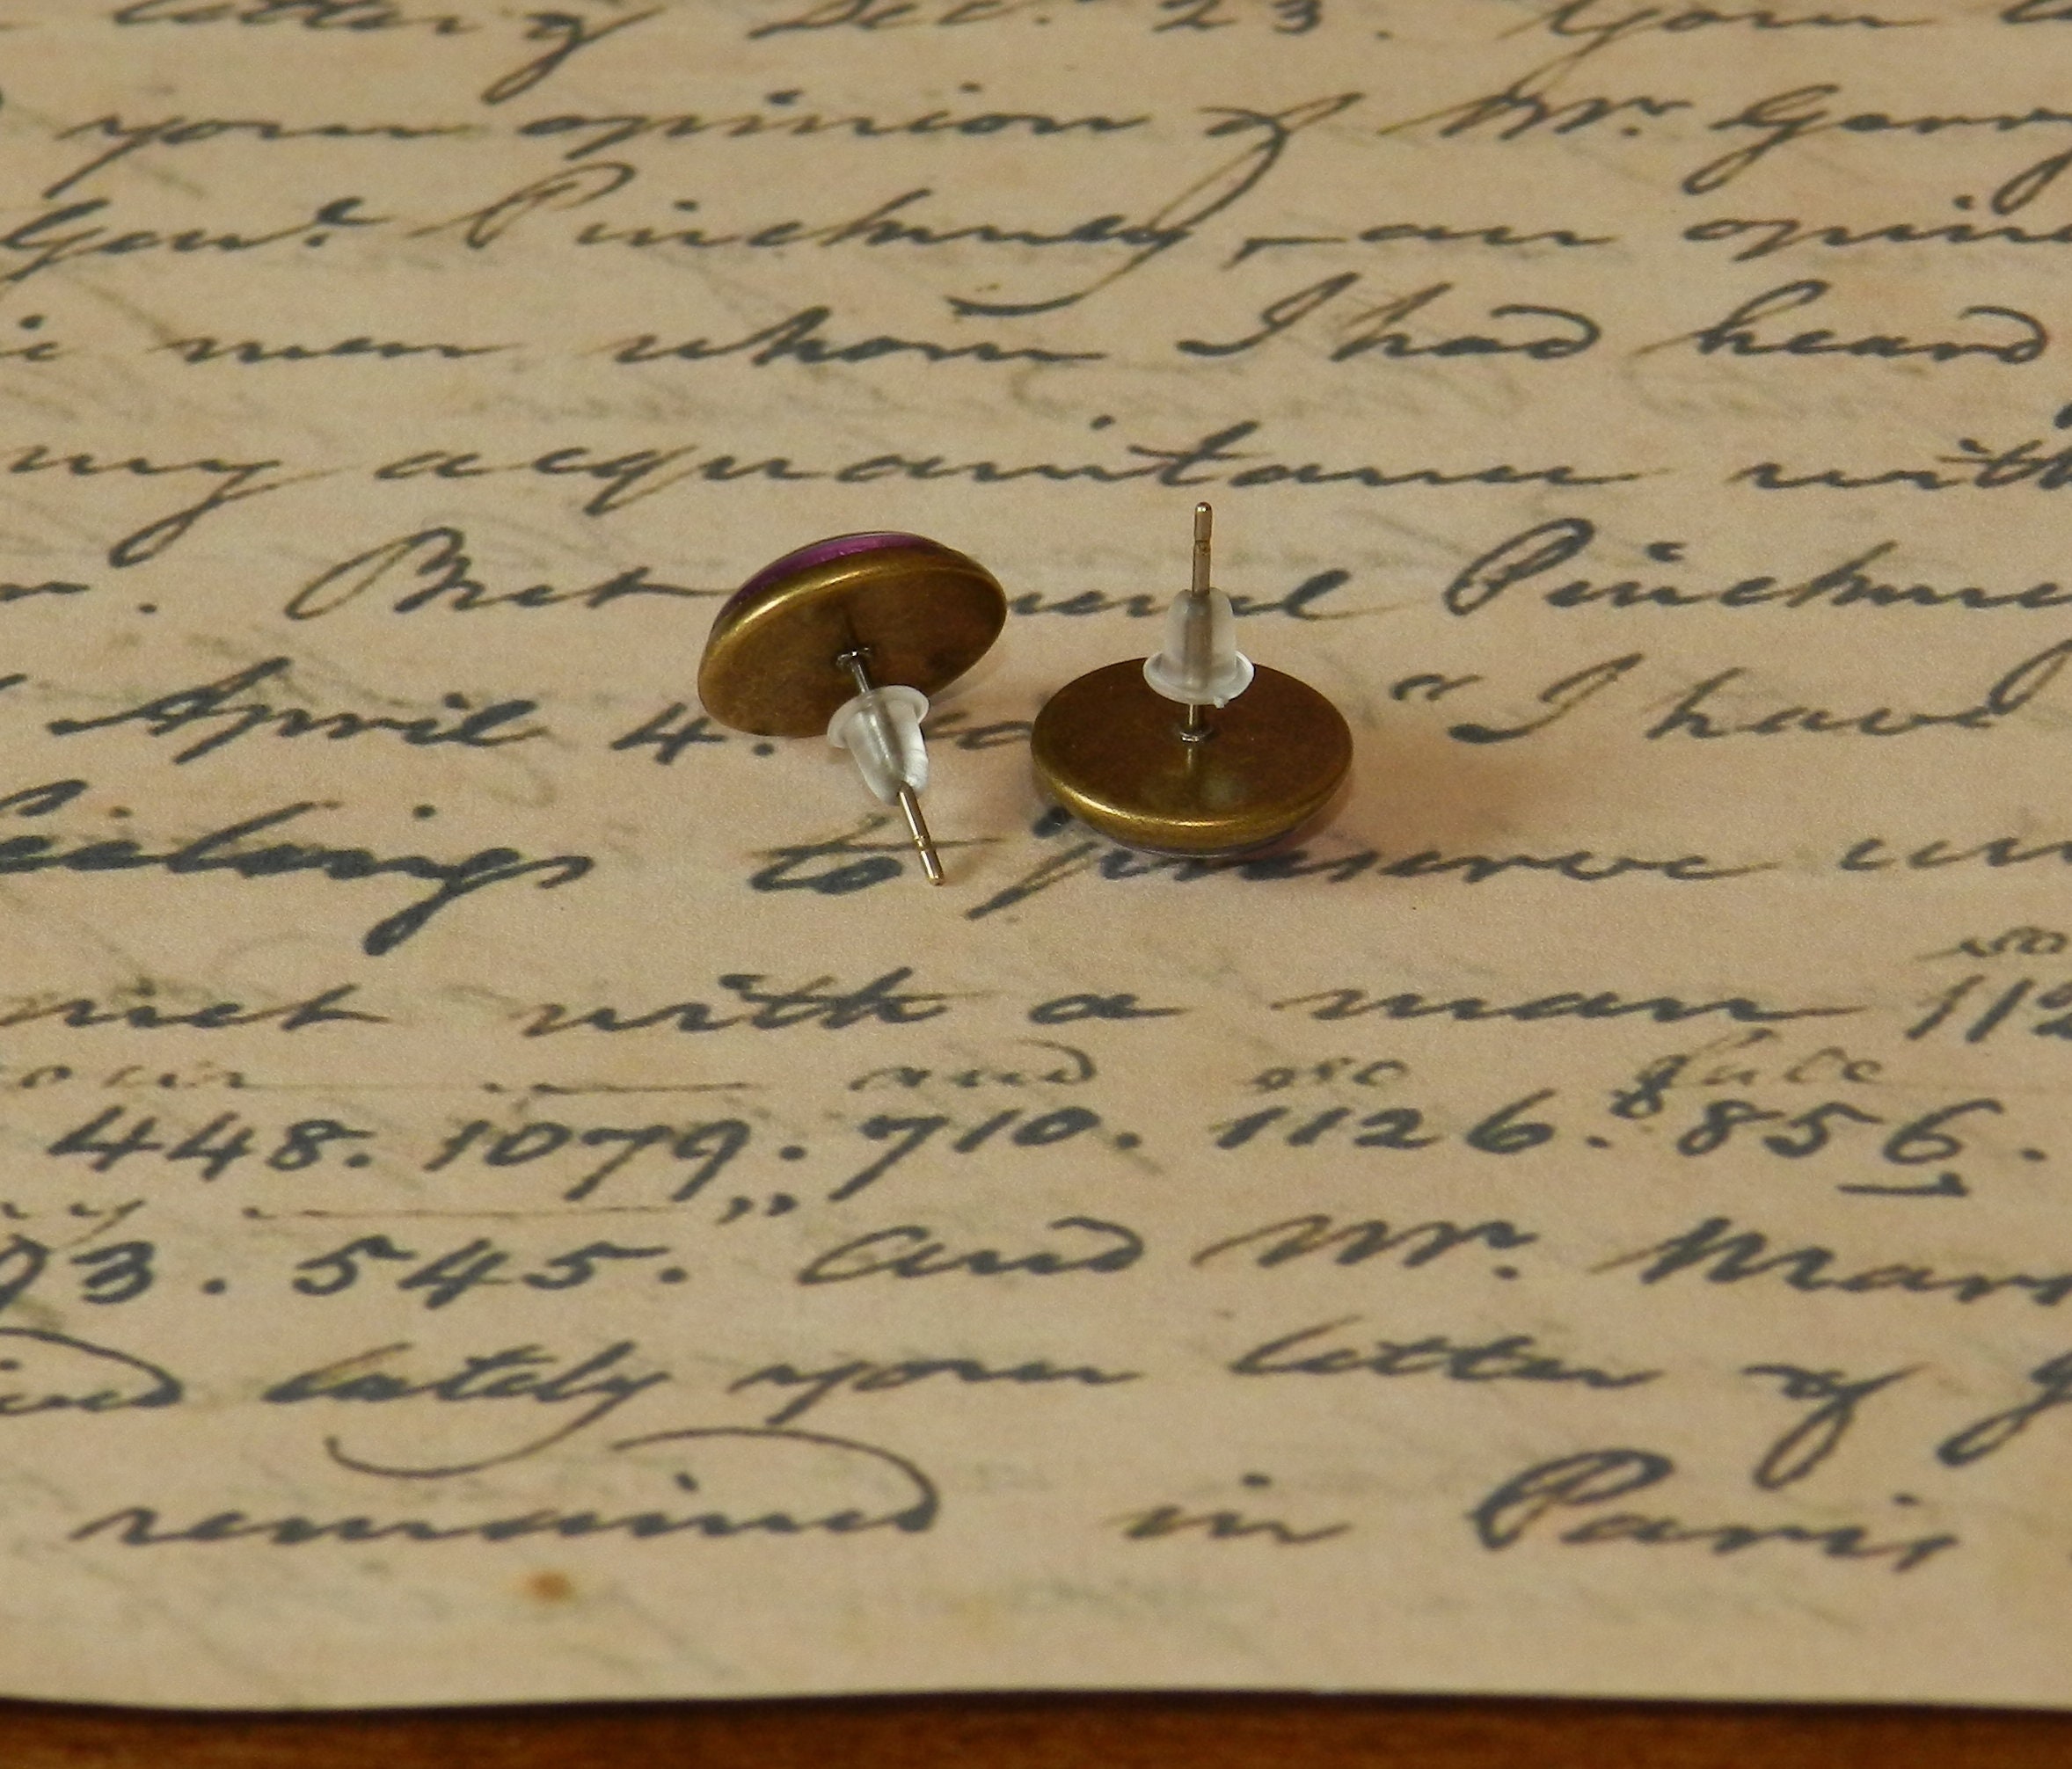 letter of Dec. 23. Your
your opinion of Mr. Gerry
Genl. Pinckney, - an opin
men whom I had heard
my acquaintance with
But Pinckney
April 4. "I have
feelings to preserve un
met with a man 112
and no
448. 1079. 710. 1126. 856.
93. 545." and Mr. Mars
lately your letter of
remained in Paris